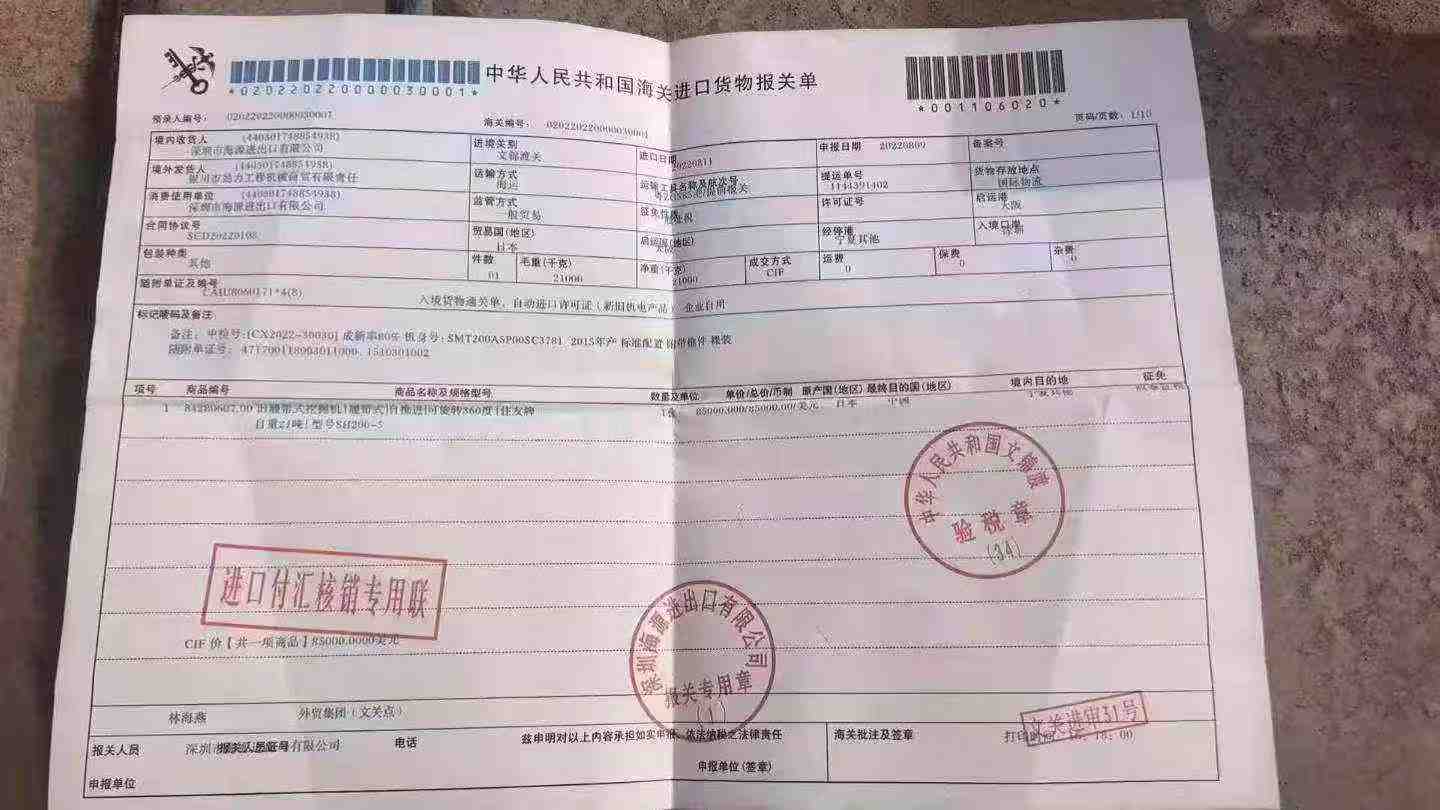 中华人民共和国海关进口货物报关单
*020220220000030001*
*001106020*
预录入编号: 020220220000030001
海关编号: 020220220000030001
页码/页数: 1/10
境内收货人 (44030174885493B)
深圳市海源进出口有限公司
进境关别
文锦渡关
进口日期
20220811
申报日期 20220809
备案号
境外发货人 (44030174885493B)
银川市劲力工程机械商贸有限责任
运输方式
海运
运输工具名称及航次号
提运单号
1144391402
货物存放地点
国际物流
消费使用单位 (44030174885493B)
深圳市海源进出口有限公司
监管方式
一般贸易
征免性质
许可证号
启运港
大阪
合同协议号
SCD20220108
贸易国(地区)
日本
启运国(地区)
经停港
宁夏其他
入境口岸
包装种类
其他
件数
01
毛重(千克)
21000
净重(千克)
21000
成交方式
CIF
运费
0
保费
0
杂费
0
随附单证及编号
CAIU8060171*4(8)
入境货物通关单、自动进口许可证(新旧机电产品) 企业自用
标记唛码及备注:
备注: 中检号:[CX2022-30030] 成新率80% 机身号: SMT200A5P00SC3781 2015年产 标准配置 附带推件 裸装
随附单证号: 471700118003011000、1510301002
项号 商品编号 商品名称及规格型号 数量及单位 单价/总价/币制 原产国(地区) 最终目的国(地区) 境内目的地 征免
1 84280607.00 旧履带式挖掘机|履带式|自推进|可旋转360度|住友牌 1台 85000.000/85000.00/美元 日本 中国 宁夏其他
自重21吨|型号SH200-5
中华人民共和国文锦渡
验税章
(34)
进口付汇核销专用联
CIF 价【共一项商品】85000.0000美元
深圳海源进出口有限公司
报关专用章
(1)
林海燕 外贸集团(文关点)
文关进审31号
报关人员 报关人员证号 电话
兹申明对以上内容承担如实申报、依法纳税之法律责任
海关批注及签章
打印时间
18: 00
申报单位
申报单位(签章)